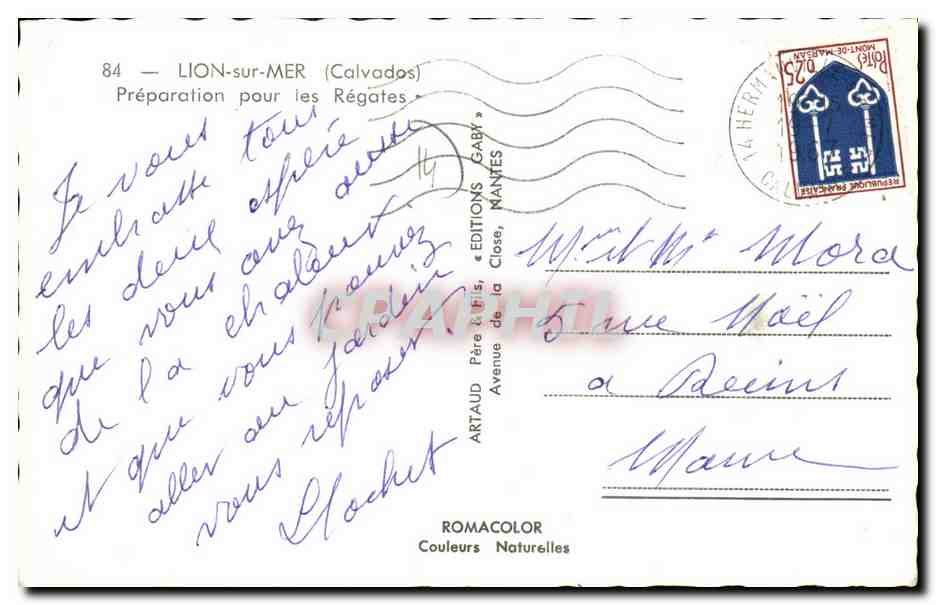 84 — LION-sur-MER (Calvados)
Préparation pour les Régates
Je vous tous
embrasse
les deux espère
que vous avez aussi
de la chaleur
et que vous pouvez
aller au jardin
vous reposer.
14
ARTAUD Père & Fils, « EDITIONS GABY »
Avenue de la Close, NANTES
POSTES
MONT-DE-MARSAN
0,25
REPUBLIQUE FRANÇAISE
14 HERM
CAL
Mme et Mr Mora
5 rue Noël
a Reims
Marne
CPAPHIL
ROMACOLOR
Couleurs Naturelles